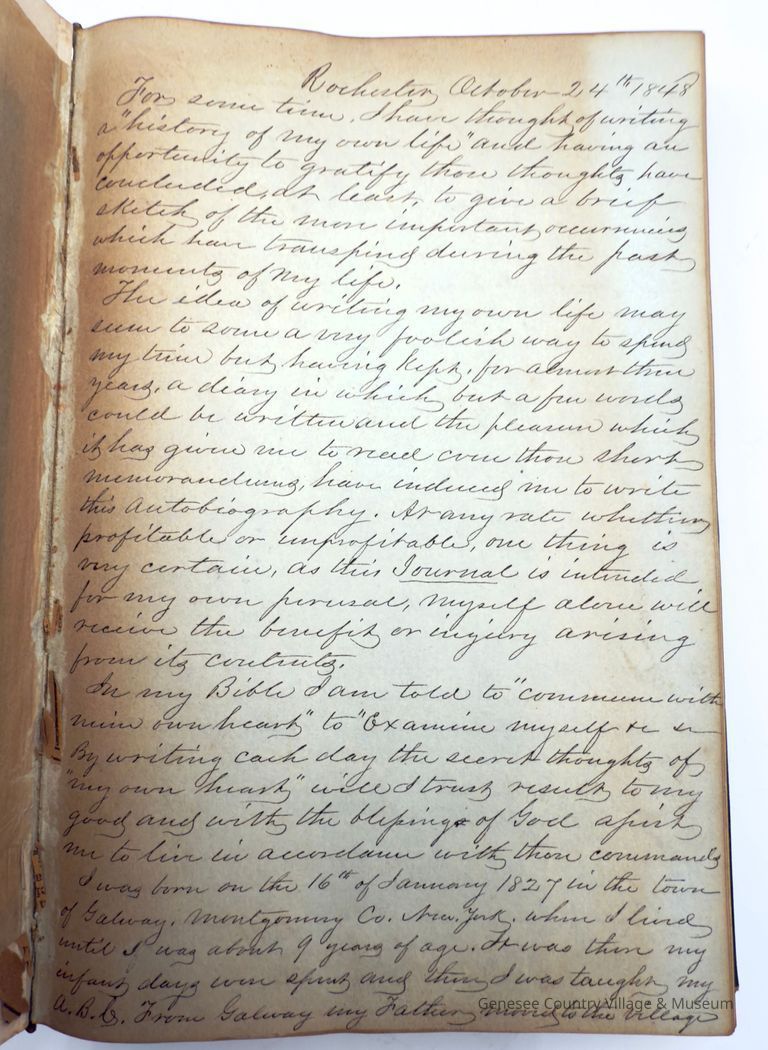 Rochester October 24th 1848
For some time, I have thought of writing
a "history of my own life" and having an
opportunity to gratify those thoughts have
concluded, at least, to give a brief
sketch of the more important occurrences
which have transpired during the past
moments of my life.
The idea of writing my own life may
seem to some a very foolish way to spend
my time but having kept, for almost three
years, a diary in which but a few words
could be written and the pleasure which
it has given me to read even those short
memorandums, have induced me to write
this Autobiography. At any rate whether
profitable or unprofitable, one thing is
very certain, as this Journal is intended
for my own perusal, myself alone will
receive the benefit or injury arising
from its contents.
In my Bible I am told to "commune with
mine own heart" to "Examine myself &c &c
By writing each day the secret thoughts of
"my own heart" will I trust result to my
good and with the blessings of God assist
me to live in accordance with those commands
I was born on the 16th of January 1827 in the town
of Galway, Montgomery Co. New. York. where I lived
until I was about 9 years of age. It was there my
infant days were spent and there I was taught my
A.B.C. From Galway my Father moved to the village
Genesee Country Village & Museum